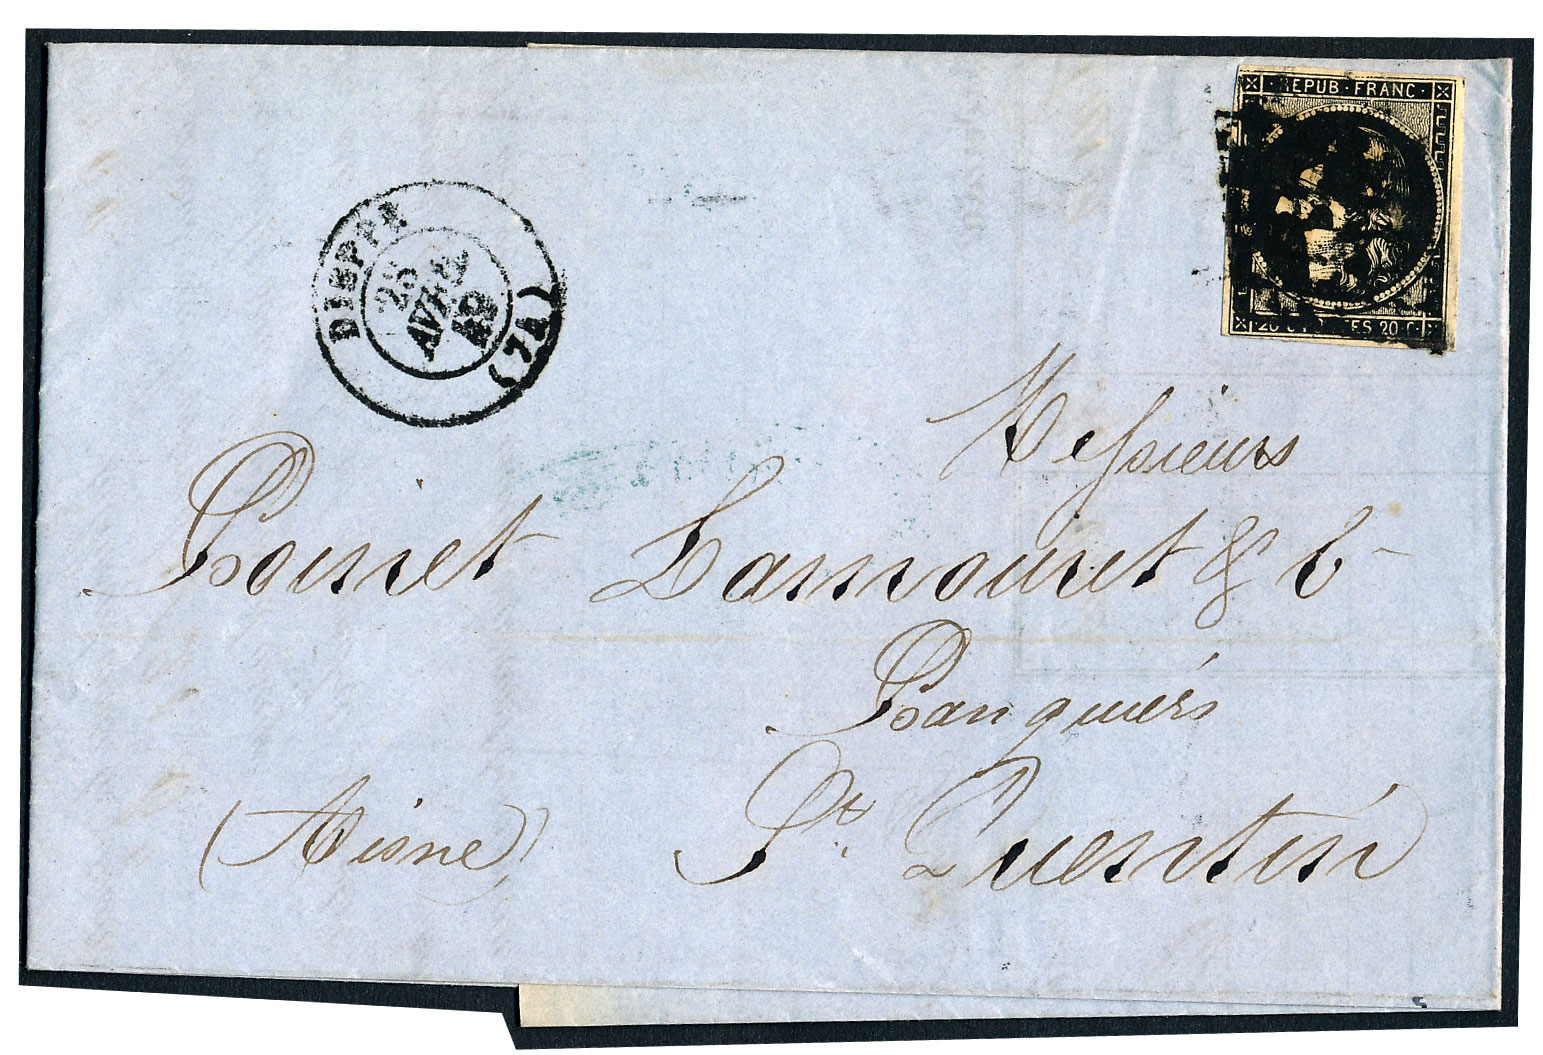 REPUB · FRANC ·
20 C POSTES 20 C
DIEPPE
AVRIL
49
(74)
Messieurs
Lamouret & C
Banquiers
St. Quentin
(Aisne)